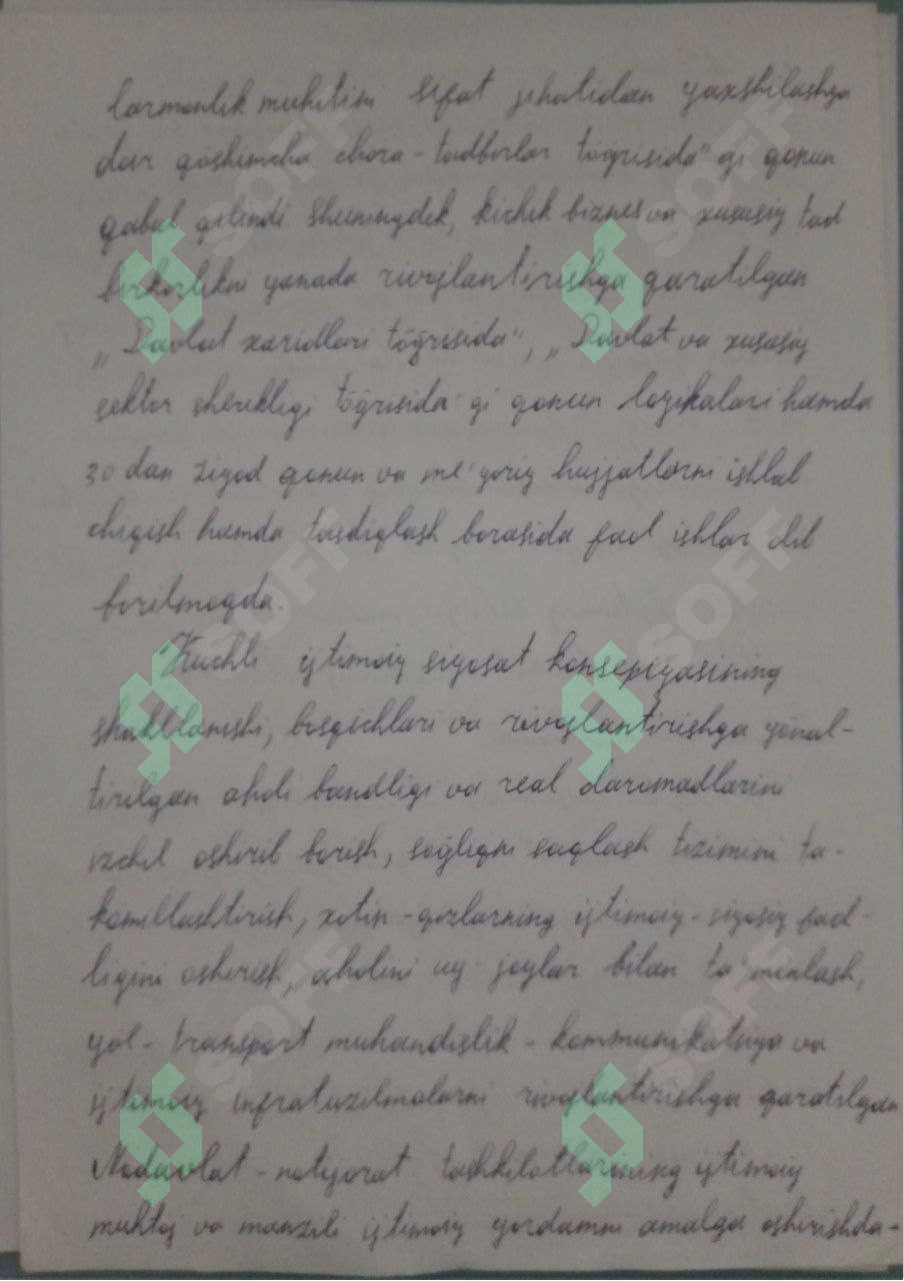 larmonlik muhitini sifat jihatidan yaxshilashga
doir qo'shimcha chora-tadbirlar to'g'risida"gi qonun
qabul qilindi. Shuningdek, kichik biznes va xususiy tad
birkorlikni yanada rivojlantirishga qaratilgan
„Davlat xaridlari to'g'risida", „Davlat va xususiy
sektor sherikligi to'g'risida"gi qonun loyihalari hamda
30 dan ziyod qonun va me'yoriy hujjatlarni ishlab
chiqish hamda tasdiqlash borasida faol ishlar olib
borilmoqda.
Kuchli ijtimoiy siyosat konsepiyasining
shakllanishi, bosqichlari va rivojlantirishga yo'nal-
tirilgan aholi bandligi va real daromadlarini
izchil oshirib borish, sog'liqni saqlash tizimini ta-
komillashtirish, xotin-qizlarning ijtimoiy-siyosiy faol-
ligini oshirish, aholini uy-joylar bilan ta'minlash,
yo'l-transport muhandislik-kommunikatsiya va
ijtimoiy infratuzilmalarni rivojlantirishga qaratilgan
Nodavlat-notijorat tashkilotlarining ijtimoiy
muhtoj va manzili ijtimoiy yordamni amalga oshirishda-
SOFF
SOFF
SOFF
SOFF
SOFF
SOFF